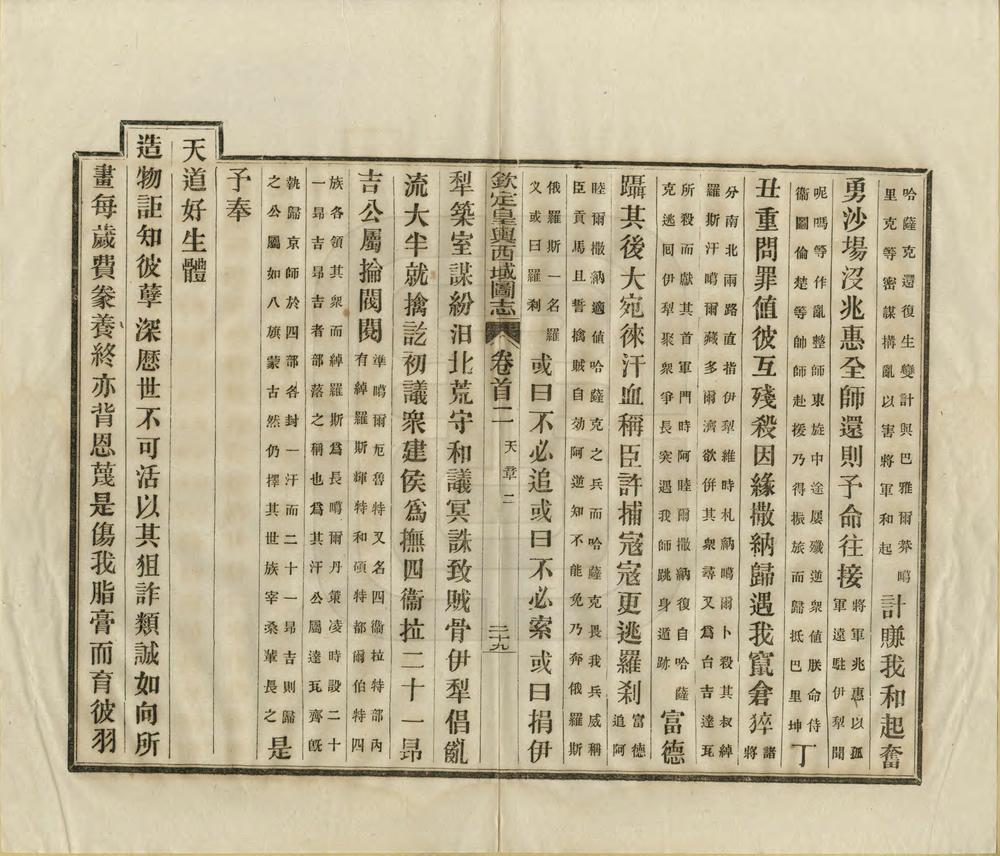 哈薩克還復生變計與巴雅爾莽噶
里克等密謀構亂以害將軍和起
計賺我和起奮
勇沙場沒兆惠全師還則予命往接
將軍兆惠以孤
軍遠駐伊犁聞
呢嗎等作亂整師東旋中途屢殲逆衆值朕命侍
衞圖倫楚等帥師赴援乃得振旅而歸抵巴里坤
丁
丑重問罪値彼互殘殺因緣撒納歸遇我竄倉猝
諸
將
分南北兩路直指伊犁維時札納噶爾卜殺其叔綽
羅斯汗噶爾藏多爾濟欲併其衆尋又爲台吉達瓦
所殺而獻其首軍門時阿睦爾撒納復自哈薩
克逃囘伊犁聚衆爭長突遇我師跳身遁跡
富德
躡其後大宛徠汗血稱臣許捕寇寇更逃羅刹
富德
追阿
睦爾撒納適値哈薩克之兵而哈薩克畏我兵威稱
臣貢馬且誓擒賊自効阿逆知不能免乃奔俄羅斯
俄羅斯一名羅
义或曰羅刹
或曰不必追或曰不必索或曰捐伊
欽定皇輿西域圖志
卷首二
天章二
二十九
犁築室謀紛汨北荒守和議冥誅致賊骨伊犁倡亂
流大半就擒訖初議衆建侯爲撫四衞拉二十一昻
吉公屬掄閥閱
準噶爾厄魯特又名四衞拉特部內
有綽羅斯輝特和碩特都爾伯特四
族各領其衆而綽羅斯爲長噶爾丹策凌時設二十
一昻吉昻吉者部落之稱也爲其汗公屬達瓦齊旣
執歸京師於四部各封一汗而二十一昻吉則歸
之公屬如八旗蒙古然仍擇其世族宰桑輩長之
是
予奉
天道好生體
造物詎知彼孽深歷世不可活以其狙詐類誠如向所
畫每歲費豢養終亦背恩蔑是傷我脂膏而育彼羽